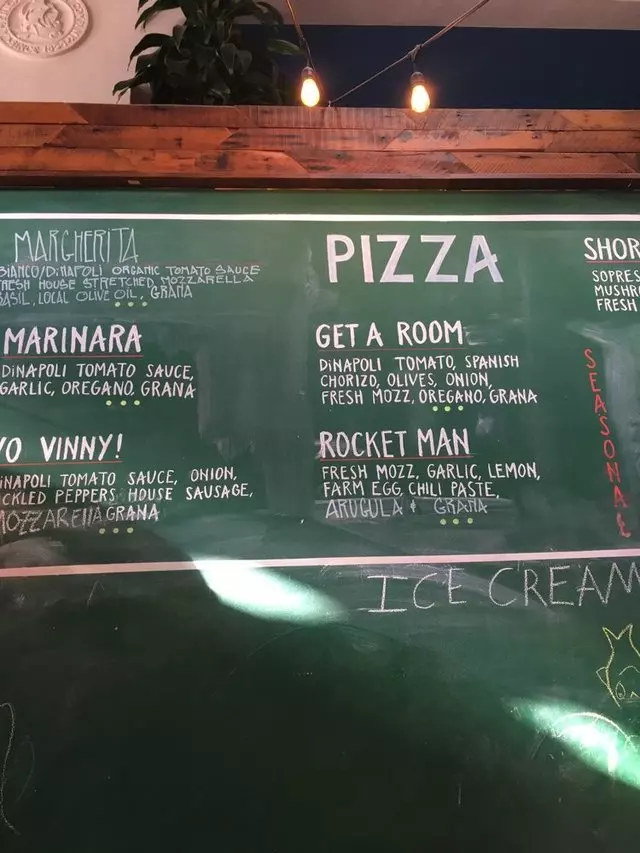 MARGHERITA
BIANCO/DINAPOLI ORGANIC TOMATO SAUCE
FRESH HOUSE STRETCHED MOZZARELLA
BASIL, LOCAL OLIVE OIL, GRANA
MARINARA
DINAPOLI TOMATO SAUCE,
GARLIC, OREGANO, GRANA
YO VINNY!
DINAPOLI TOMATO SAUCE, ONION,
CKLED PEPPERS HOUSE SAUSAGE,
MOZZARELLA GRANA
PIZZA
GET A ROOM
DINAPOLI TOMATO, SPANISH
CHORIZO, OLIVES, ONION,
FRESH MOZZ, OREGANO, GRANA
ROCKET MAN
FRESH MOZZ, GARLIC, LEMON,
FARM EGG, CHILI PASTE,
ARUGULA & GRANA
SHOR
SOPRES
MUSHR
FRESH
SEASONAL
ICE CREAM